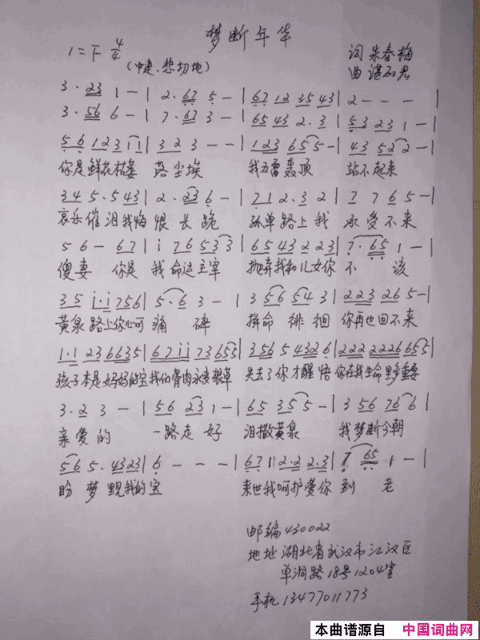 梦断年华
1=F 4/4
(中速.悲切地)
词 朱春梅
曲 湛石君
3·23 1-|2·67 5-|67 12 15 43|2 - - -|
3·56 6-|7·67 3-|65 43 2·3|5 3 23 1-|
56 123 11|3 2 3 - -|123 65 5-|43 52 2-|
你是鲜花枯萎 落尘埃 我五雷轰顶 站不起来
34 5·5 43|2·23 6-|71 2·3 2|7 7 6 5-|
哀乐催泪我悔恨长跪 孤单路上我承受不来
5 6 - 67|i 76 53 3|65 43 2 23|7·65 1-|
傻妻 你是我命运主宰 抛弃我和儿女你不 该
35 i·i 756|5·6 3-|3 56 54 3|223 26 5-|
黄泉路上你心可痛碎 拚命徘徊 你再也回不来
1·1 23 6635|67ii 73 655|3 56 5 432 6|222 2226 655|
孩子本是妈妈的宝 失去了你才醒悟 你在我生命里多重要
3·2 3-|56 23 1-|65 35 5-|3 56 76 6|
亲爱的 一路走好 泪撒黄泉 我梦断今朝
56 5·43 23|6 - - -|671 2·2 2·3|7 65 1-|
盼梦里见我的宝 来世我呵护爱你到 老
邮编430022
地址湖北省武汉市江汉区
单洞路18号1204室
手机13477011773
本曲谱源自 中国词曲网